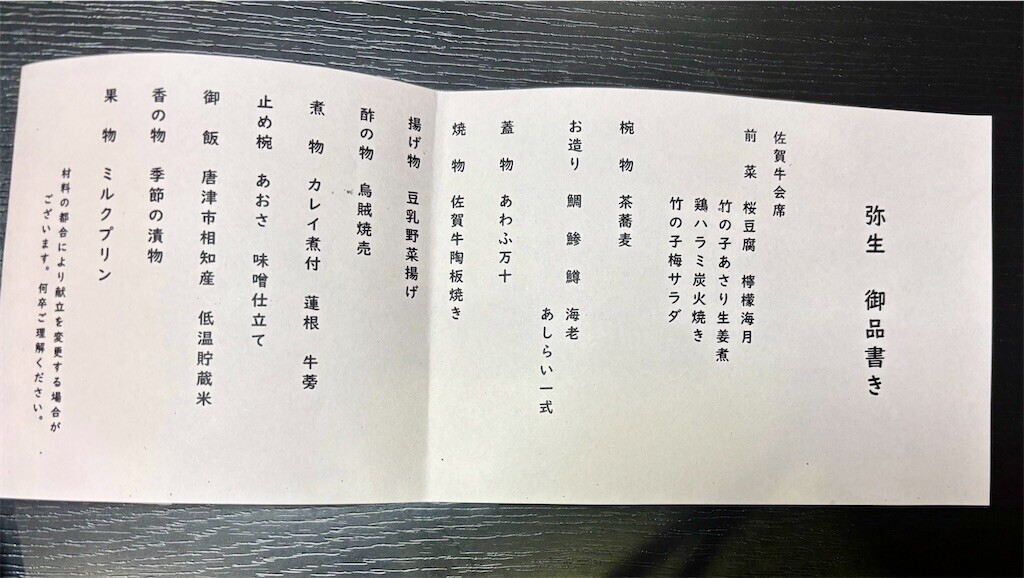 弥生　御品書き
佐賀牛会席
前　菜　桜豆腐　檸檬海月
竹の子あさり生姜煮
鶏ハラミ炭火焼き
竹の子梅サラダ
椀　物　茶蕎麦
お造り　鯛　鰺　鱒　海老
あしらい一式
蓋　物　あわふ万十
焼　物　佐賀牛陶板焼き
揚げ物　豆乳野菜揚げ
酢の物　烏賊焼売
煮　物　カレイ煮付　蓮根　牛蒡
止め椀　あおさ　味噌仕立て
御　飯　唐津市相知産　低温貯蔵米
香の物　季節の漬物
果　物　ミルクプリン
材料の都合により献立を変更する場合が
ございます。何卒ご理解ください。